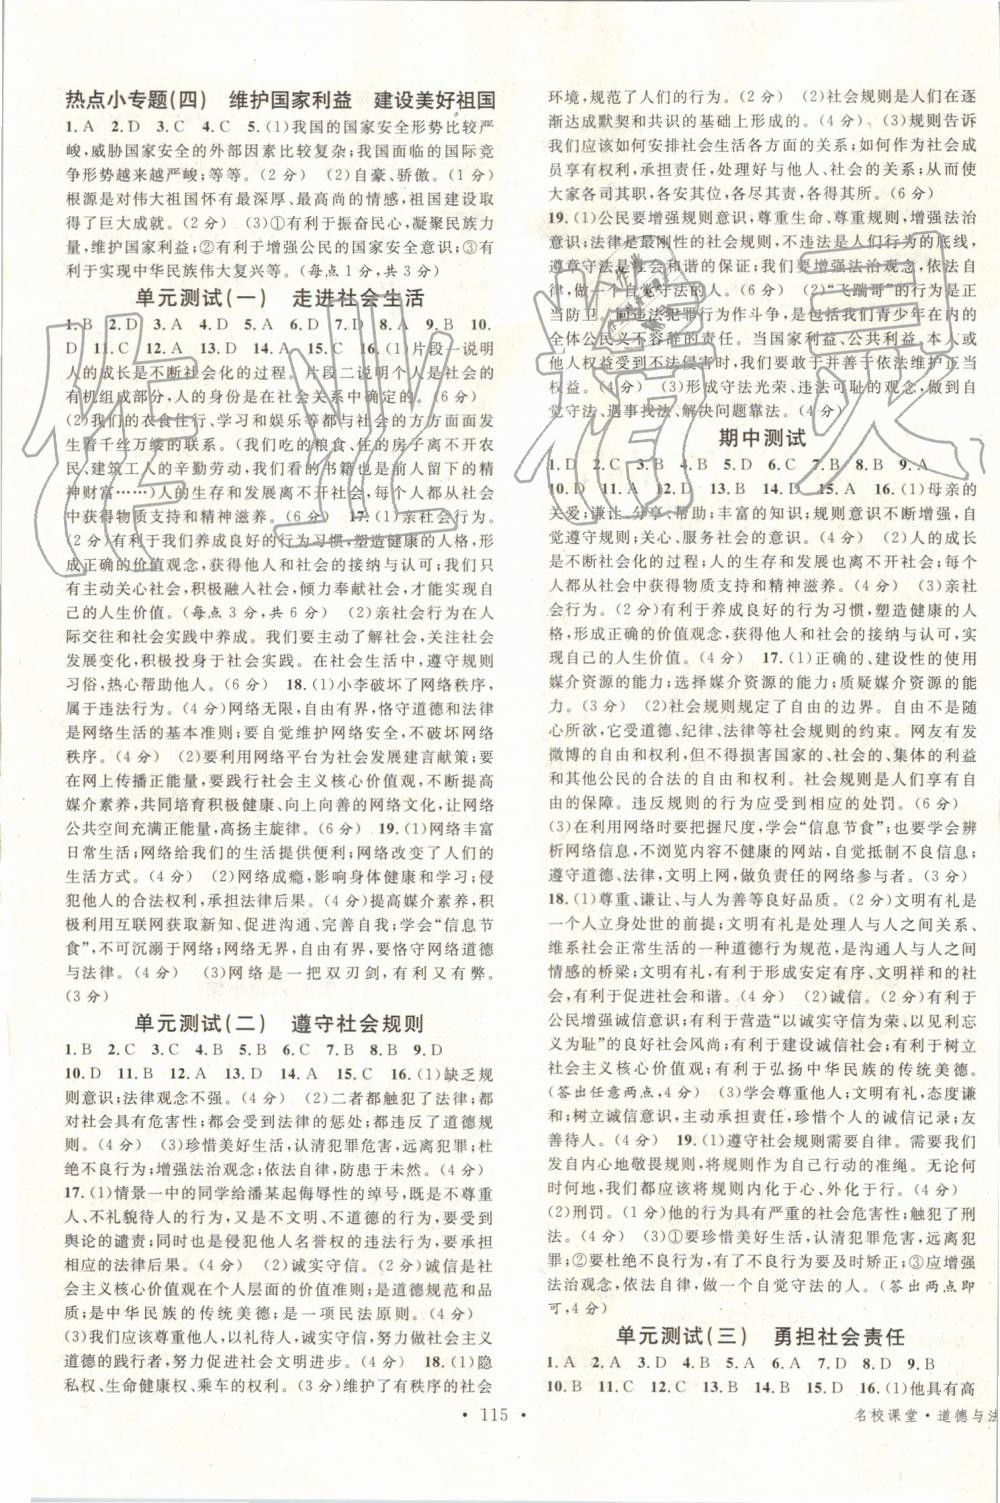 热点小专题(四)　维护国家利益　建设美好祖国
1. A　2. D　3. C　4. C　5. (1)我国的国家安全形势比较严
峻,威胁国家安全的外部因素比较复杂;我国面临的国际竞
争形势越来越严峻;等等。(2分)　(2)自豪、骄傲。(1分)
根源是对伟大祖国怀有最深厚、最高尚的情感,祖国建设取
得了巨大成就。(2分)　(3)①有利于振奋民心,凝聚民族力
量,维护国家利益;②有利于增强公民的国家安全意识;③有
利于实现中华民族伟大复兴等。(每点1分,共3分)
单元测试(一)　走进社会生活
1. B　2. D　3. A　4. D　5. D　6. D　7. D　8. A　9. B　10.
D　11. C　12. A　13. D　14. A　15. C　16. (1)片段一说明
人的成长是不断社会化的过程。片段二说明个人是社会的
有机组成部分,人的身份是在社会关系中确定的。(6分)
(2)我们的衣食住行、学习和娱乐等都与社会的方方面面发
生着千丝万缕的联系。(我们吃的粮食、住的房子离不开农
民、建筑工人的辛勤劳动,我们看的书籍也是前人留给我们的精
神财富……)人的生存和发展离不开社会,每个人都从社会
中获得物质支持和精神滋养。(6分)　17. (1)亲社会行为。
(2分)有利于我们养成良好的行为习惯,塑造健康的人格,形
成正确的价值观念,获得他人和社会的接纳与认可;我们只
有主动关心社会,积极融入社会,倾力奉献社会,才能实现自
己的人生价值。(每点3分,共6分)　(2)亲社会行为在人
际交往和社会实践中养成。我们要主动了解社会,关注社会
发展变化,积极投身于社会实践。在社会生活中,遵守规则
习俗,热心帮助他人。(6分)　18. (1)小李破坏了网络秩序,
属于违法行为。(4分)网络无限,自由有界,恪守道德和法律
是网络生活的基本准则;要自觉维护网络安全,不破坏网络
秩序。(4分)　(2)要利用网络平台为社会发展建言献策;要
在网上传播正能量,要践行社会主义核心价值观,不断提高
媒介素养,共同培育积极健康、向上向善的网络文化,让网络
公共空间充满正能量,高扬主旋律。(6分)　19. (1)网络丰富
日常生活;网络给我们的生活提供便利;网络改变了人们的
生活方式。(4分)　(2)网络成瘾,影响身体健康和学习;侵
犯他人的合法权利,承担法律后果。(4分)提高媒介素养,积
极利用互联网获取新知、促进沟通、完善自我;学会“信息节
食”,不可沉溺于网络;网络无界,自由有界,要恪守网络道德
与法律。(4分)　(3)网络是一把双刃剑,有利又有弊。
(3分)
单元测试(二)　遵守社会规则
1. B　2. C　3. C　4. B　5. B　6. D　7. B　8. B　9. D
10. D　11. B　12. A　13. D　14. A　15. C　16. (1)缺乏规
则意识;法律观念不强。(4分)　(2)二者都触犯了法律;都
对社会具有危害性;都会受到法律的惩处;都违反了道德规
则。(4分)　(3)珍惜美好生活,认清犯罪危害,远离犯罪;杜
绝不良行为;增强法治观念;依法自律,防患于未然。(4分)
17. (1)情景一中的同学给潘某起侮辱性的绰号,是不尊重
人、不礼貌待人的行为,又是不文明、不道德的行为,要受到
舆论的谴责;同时也是侵犯他人名誉权的违法行为,要承担
相应的法律责任。(4分)　(2)诚实守信。(2分)诚信是社
会主义核心价值观在个人层面的价值准则;是一种道德规范和品
质;是中华民族的传统美德;是一项民法原则。(4分)
(3)我们应该尊重他人,以礼待人,诚实守信,努力做社会主义
道德的践行者,努力促进社会文明进步。(4分)　18. (1)隐
私权、生命健康权、乘车的权利。(3分)维护了有秩序的社会
环境,规范了人们的行为。(2分)　(2)社会规则是人们在逐
渐达成默契和共识的基础上形成的。(4分)　(3)规则告诉
我们应该如何安排社会生活各方面的关系;如何作为社会成
员享有权利,承担责任,处理好与他人、社会的关系,从而使
大家各司其职,各安其位,各尽其责,各得其所。(6分)
19. (1)公民要增强规则意识,尊重生命、尊重规则,增强法治
意识;法律是最刚性的社会规则,不违法是人们行为的底线,
遵章守法是社会和谐的保证;我们要增强法治观念,依法自
律,做一个自觉守法的人。(4分)　(2)“飞踹哥”的行为是正
当防卫,同违法犯罪行为作斗争,是包括我们青少年在内的
全体公民义不容辞的责任。当国家利益、公共利益,本人或
他人权益受到不法侵害时,我们要敢于并善于依法维护正当
权益。(4分)　(3)形成守法光荣、违法可耻的观念,做到自
觉守法、遇事找法、解决问题靠法。(4分)
期中测试
1. D　2. C　3. B　4. B　5. D　6. C　7. B　8. B　9. A
10. D　11. A　12. D　13. D　14. D　15. A　16. (1)母亲的
关爱;谦让、分享、帮助;丰富的知识;规则意识不断增强,自
觉遵守规则;关心、服务社会的意识。(4分)　(2)人的成长
是不断社会化的过程;人的生存和发展也离不开社会,每个
人都从社会中获得物质支持和精神滋养。(4分)　(3)亲社
会行为。(2分)有利于养成良好的行为习惯,塑造健康的人
格,形成正确的价值观念,获得他人和社会的接纳与认可,实
现自己的人生价值。(4分)　17. (1)正确的、建设性的使用
媒介资源的能力;选择媒介资源的能力;质疑媒介资源的能力。
(3分)　(2)社会规则规定了自由的边界。自由不是随
心所欲,它受道德、纪律、法律等社会规则的约束。网友有发
微博的自由和权利,但不得损害国家的、社会的、集体的利益
和其他公民的合法的自由和权利。社会规则是人们享有自
由的保障。违反规则的行为应受到相应的处罚。(6分)
(3)在利用网络时要把握尺度,学会“信息节食”;也要学会辨
析网络信息,不浏览内容不健康的网站,自觉抵制不良信息;
遵守道德、法律,文明上网,做负责任的网络参与者。(3分)
18. (1)尊重、谦让、与人为善等良好品质。(2分)文明有礼是
一个人立身处世的前提;文明有礼是处理人与人之间关系、
维系社会正常生活的一种道德行为规范,是沟通人与人之间
情感的桥梁;文明有礼,有利于形成安定有序、文明祥和的社
会,有利于促进社会和谐。(4分)　(2)诚信。(2分)有利于
公民增强诚信意识;有利于营造“以诚实守信为荣、以见利忘
义为耻”的良好社会风尚;有利于建设诚信社会;有利于树立
社会主义核心价值观;有利于弘扬中华民族的传统美德。
(答出任意两点,4分)　(3)学会尊重他人;文明有礼,态度谦
和;树立诚信意识,主动承担责任,珍惜个人的诚信记录;友
善待人。(4分)　19. (1)遵守社会规则需要自律。需要我们
发自内心地敬畏规则,将规则作为自己行动的准绳。无论何
时何地,我们都应该将规则内化于心、外化于行。(4分)
(2)刑罚。(1分)他的行为具有严重的社会危害性;触犯了刑
法。(4分)　(3)①要珍惜美好生活,认清犯罪危害,远离犯
罪;②要杜绝不良行为,有了不良行为要及时矫正;③应增强
法治观念,依法自律,做一个自觉守法的人。(答出两点即
可,4分)
单元测试(三)　勇担社会责任
1. A　2. A　3. D　4. D　5. D　6. A　7. D　8. D　9. B
10. B　11. A　12. C　13. A　14. D　15. B　16. (1)他具有高
• 115 •
名校课堂·道德与法